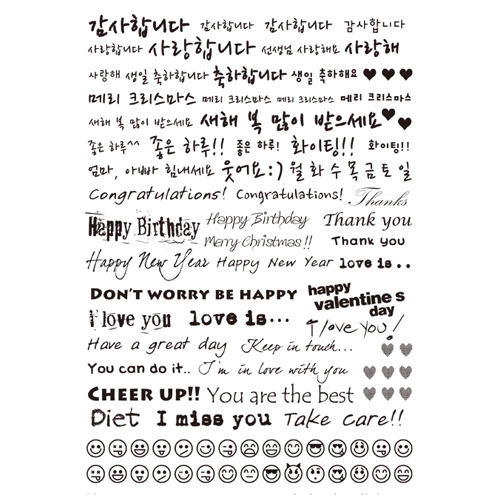 감사합니다 감사합니다 감사합니다 감사합니다
사랑합니다 사랑합니다 선생님 사랑해요 사랑해
사랑해 생일 축하합니다 축하합니다 생일 축하해요 ♥♥♥
메리 크리스마스 메리 크리스마스 메리 크리스마스 메리 크리스마스
새해 복 많이 받으세요 새해 복 많이 받으세요 ♥♥
좋은 하루^^ 좋은 하루!! 좋은 하루! 화이팅!! 화이팅!!
엄마, 아빠 힘내세요 웃어요:) 월 화 수 목 금 토 일
Congratulations! Congratulations! Thanks
Happy Birthday Happy Birthday Thank you
Merry Christmas!! Thank you
Happy New Year Happy New Year love is..
DON'T WORRY BE HAPPY happy valentine s day
I love you love is... I love you!
Have a great day Keep in touch...
You can do it.. I'm in love with you
CHEER UP!! You are the best
Diet I miss you Take care!!